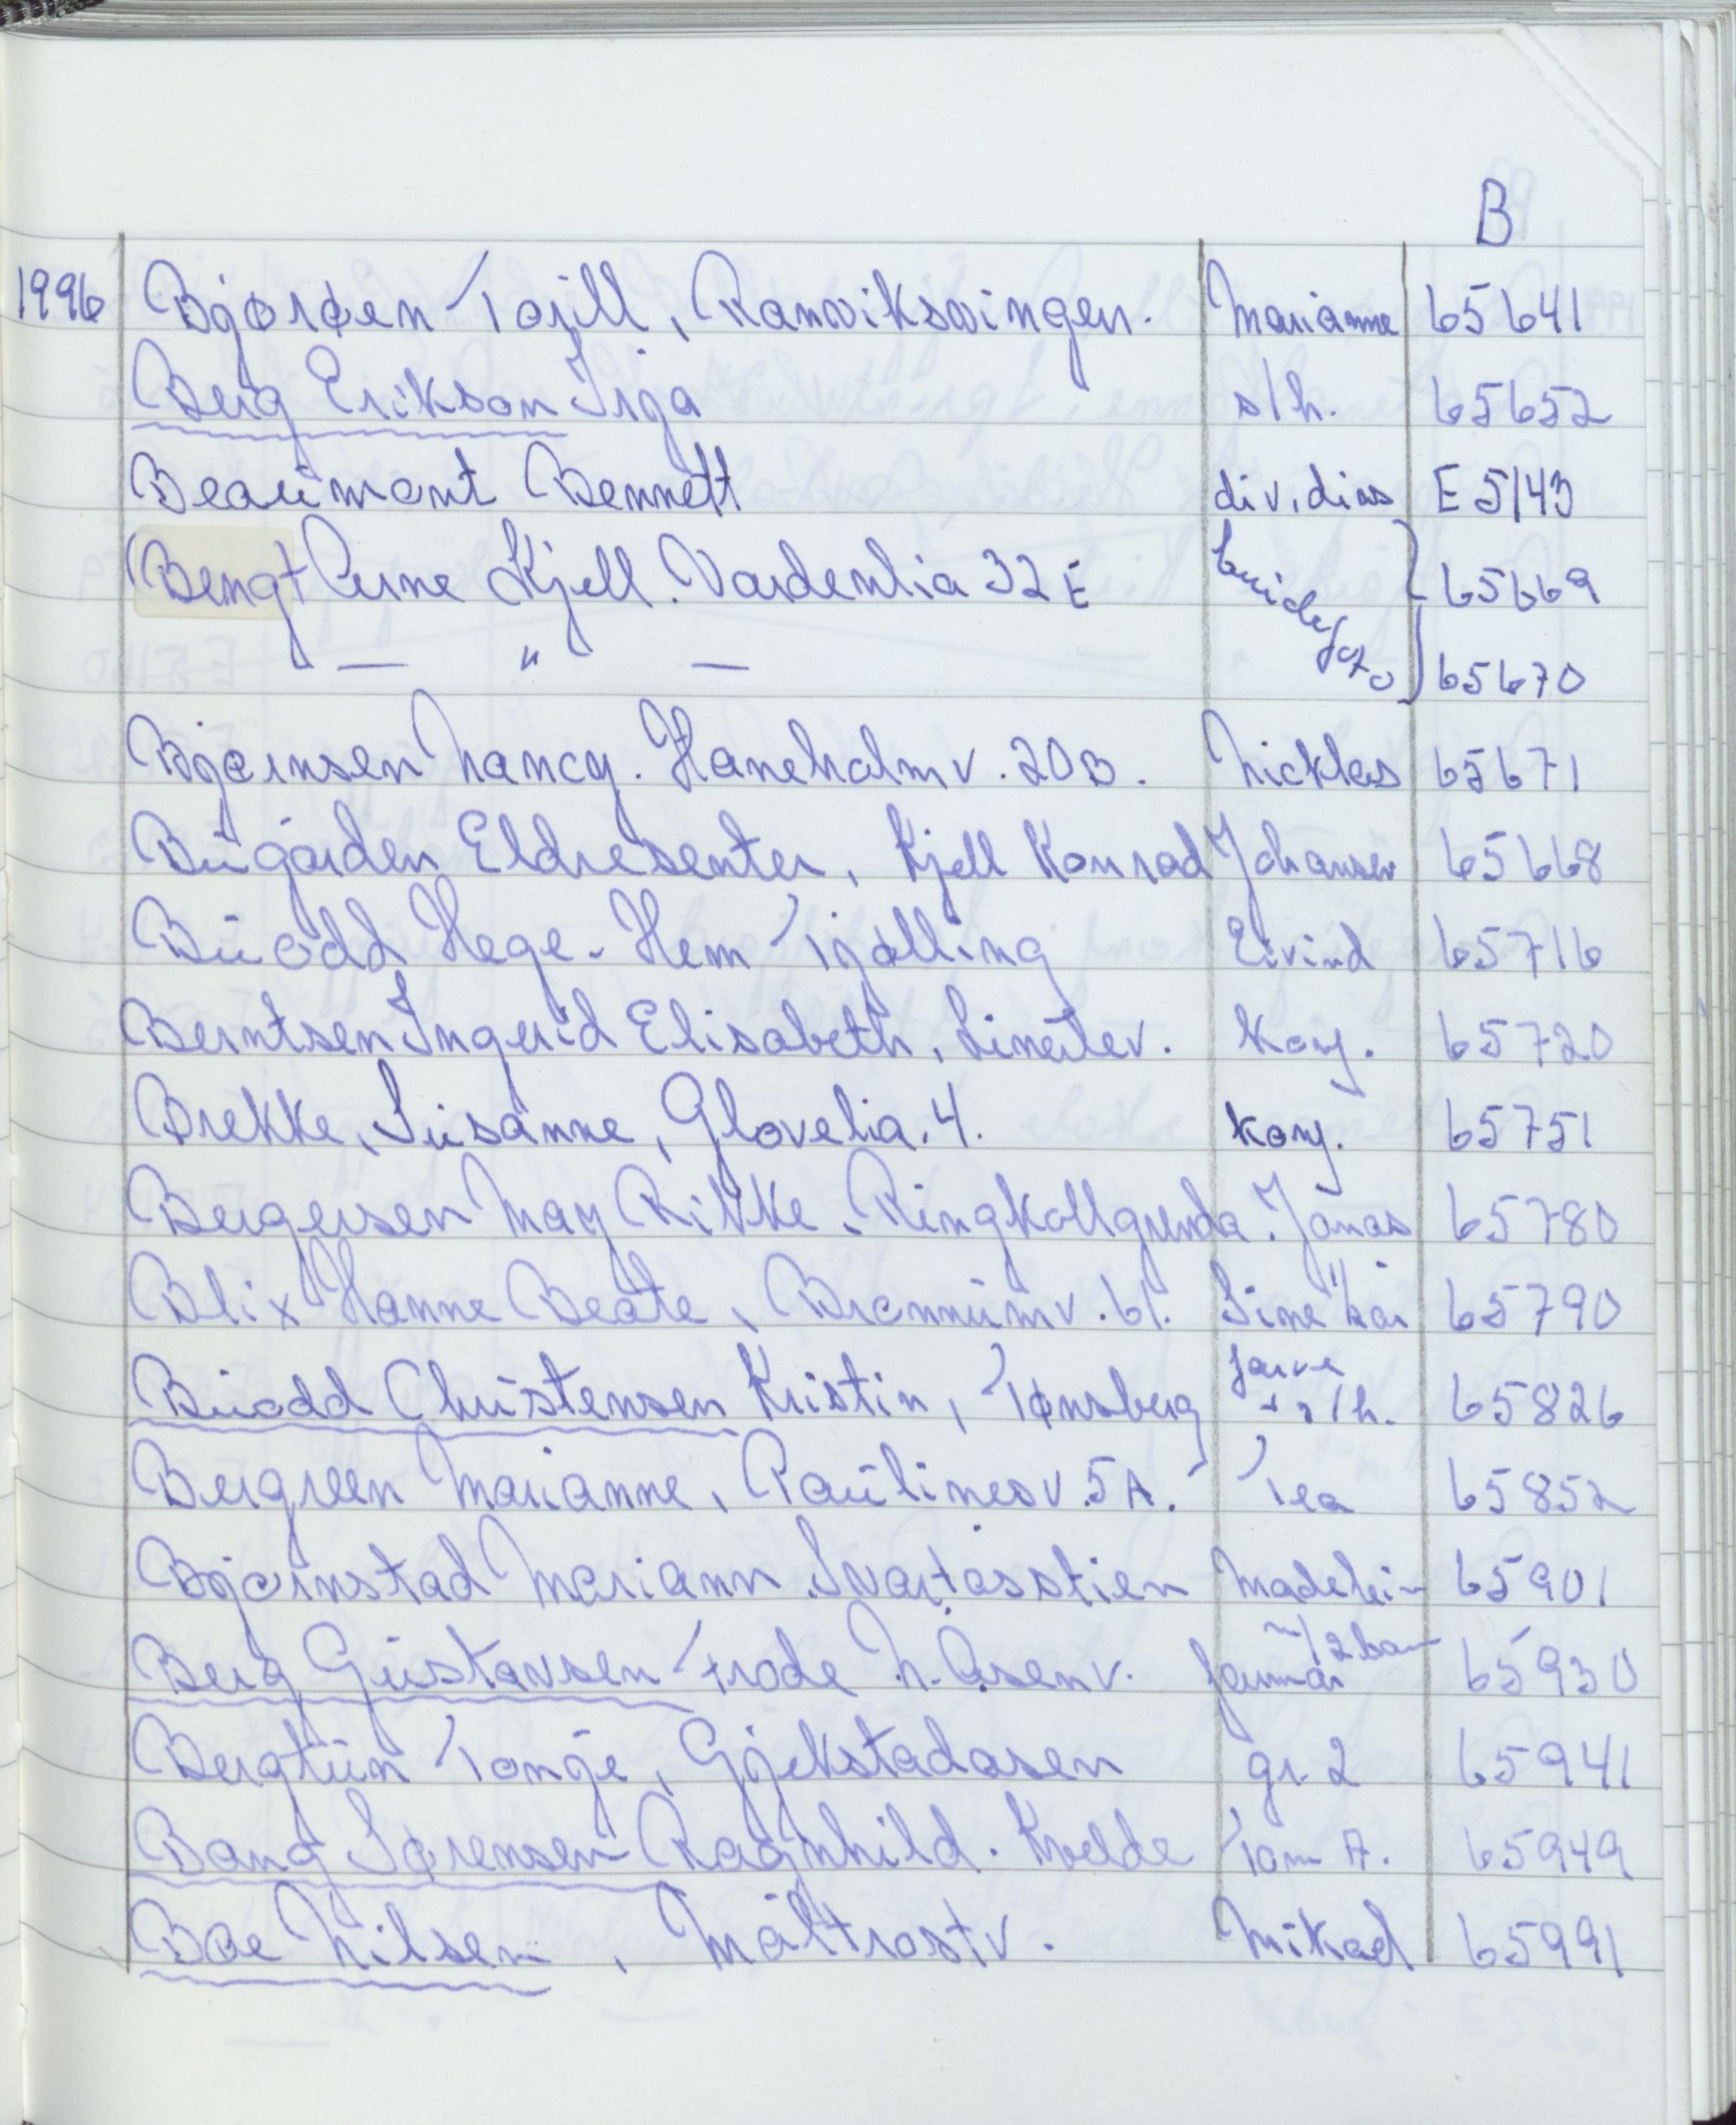 B
1996 Bjørøen Torill, Ranviksvingen. Marianne 65641
Berg Erikson Irja s/h. 65652
Beaumont Bennett div. dias E5143
(Bengt Arne Kjell. Vardenlia 32E brudefoto 65669
— " — 65670
Bjørnsen Nancy. Haneholmv. 20B. Nicklas 65671
Bugården Eldresenter, Kjell Konrad Johansen 65668
Buodd Hege. Hem Tjølling Eivind 65716
Berntsen Ingerid Elisabeth, Linétev. Konf. 65720
Brekke, Susanne, Glovelia. 4. konf. 65751
Bergersen May Rikke. Ringkollgrenda. Jonas 65780
Blix Hanne Beate, Bronnumv. 61. Sine Kai 65790
Buodd Christensen Kristin, Tønsberg farve + s/h. 65826
Bergreen Marianne, Paulinesv. 5A. Tea 65852
Bjørnstad Mariann. Svartåsstien Madelein 65901
Berg Gustavsen Frode N. Åsenv. m/2 barn 65930
Bergtun Tonje, Gjekstadåsen gr. 2 65941
Bang Sørensen Ragnhild. Kvelde Tom A. 65949
Bøe Nilsen, Måltrostv. Mikael 65991